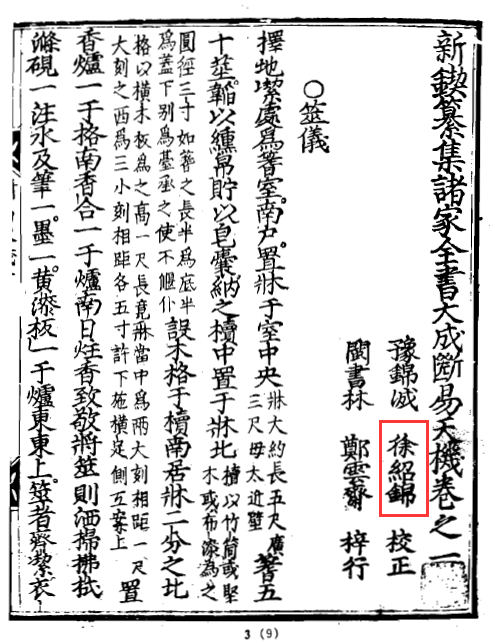 新鍥纂集諸家全書大成斷易天機卷之一
豫錦誠 徐紹錦 校正
閩書林 鄭雲齋 梓行
○筮儀
擇地潔處爲蓍室。南戶。置牀于室中央 牀大約長五尺廣三尺毋太近壁 蓍五
十莖。韜以纁帛貯以皂囊納之櫝中置于牀北 櫝以竹筒或堅木或布漆為之
圓徑三寸如蓍之長半爲底半爲蓋下別爲臺函之使不偃仆 設木格于櫝南居牀二分之北
格以横木板爲之高一尺長竟牀當中爲兩大刻相距一尺大刻之西爲三小刻相距各五寸許下施横足側立案上 置
香爐一于格南香合一于爐南日炷香致敬將筮則洒掃拂拭
滌硯一注水及筆一。墨一。黄漆板一于爐東東上。筮者齊潔衣
3 (9)